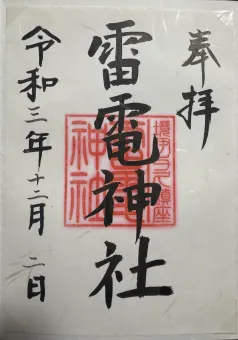 奉拝
雷電神社
令和三年十二月二日